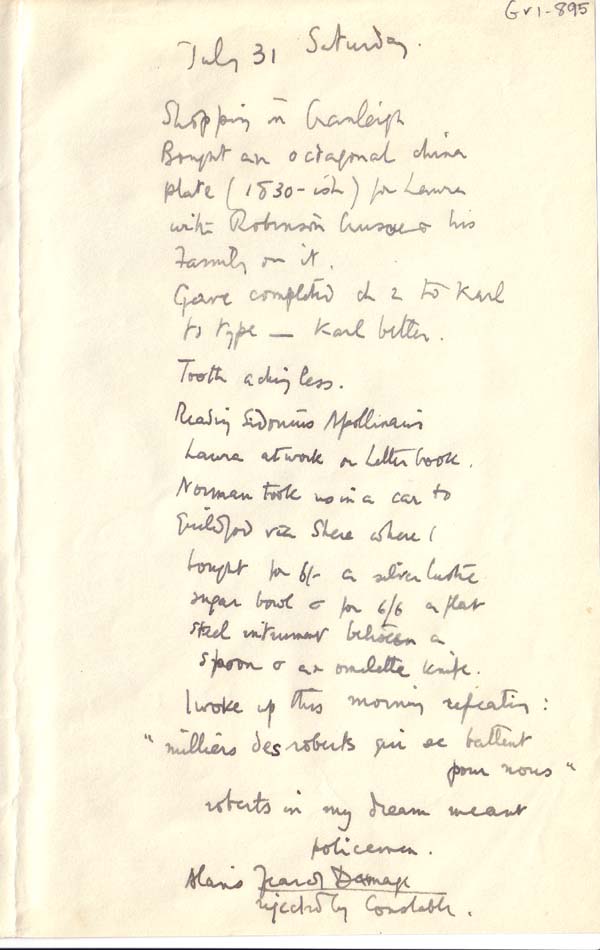 Gv1-895
July 31 Saturday.
Shopping in Cranleigh
Bought an octagonal china
plate (1830-ish) for Laura
with Robinson Crusoe & his
Family on it.
Gave completed ch 2 to Karl
to type — Karl better.
Tooth aching less.
Reading Sidonius Apollinaris
Laura at work on Letter book.
Norman took us in a car to
Guildford via Shere where I
bought for 6/- a silver lustre
sugar bowl & for 6/6 a flat
steel instrument between a
spoon & an omelette knife.
I woke up this morning repeating:
"milliers des roberts qui se battent
pour nous"
roberts in my dream meant
policemen.
Alan's Fear & Damage
rejected by Constable.